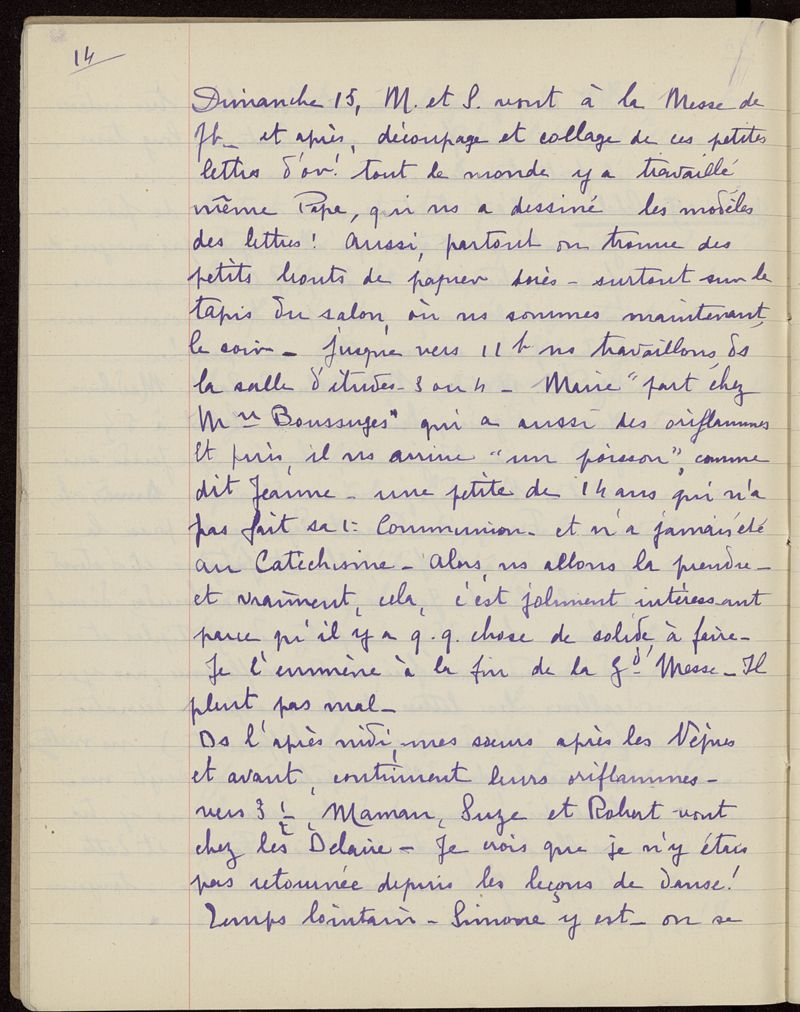 14
Dimanche 15, M. et S. vont à la Messe de
7h_ et après, découpage et collage de ces petites
lettres d'or! tout le monde y a travaillé
même Papa, qui ns a dessiné les modèles
des lettres! Aussi, partout on trouve des
petits bouts de papier dorés - surtout sur le
tapis du salon, où ns sommes maintenant,
le soir _ Jusque vers 11h ns travaillons ds
la salle d'études - 3 ou 4 - Marie "part chez
Mlle Boussuges" qui a aussi des oriflammes
Et puis, il ns arrive "un poisson", comme
dit Jeanne - une petite de 14 ans qui n'a
pas fait sa 1= Communion - et n'a jamais été
au Catéchisme - Alors, ns allons la prendre -
et vraiment, cela, c'est joliment intéressant
parce qu'il y a q.q. chose de solide à faire -
Je l'emmène à la fin de la Gd Messe - Il
pleut pas mal -
Ds l'après midi, mes sœurs après les Vêpres
et avant, continuent leurs oriflammes -
vers 3 1/2, Maman, Suze et Robert vont
chez les Delaire - Je crois que je n'y étais
pas retournée depuis les leçons de danse!
Temps lointain - Simone y est - on se